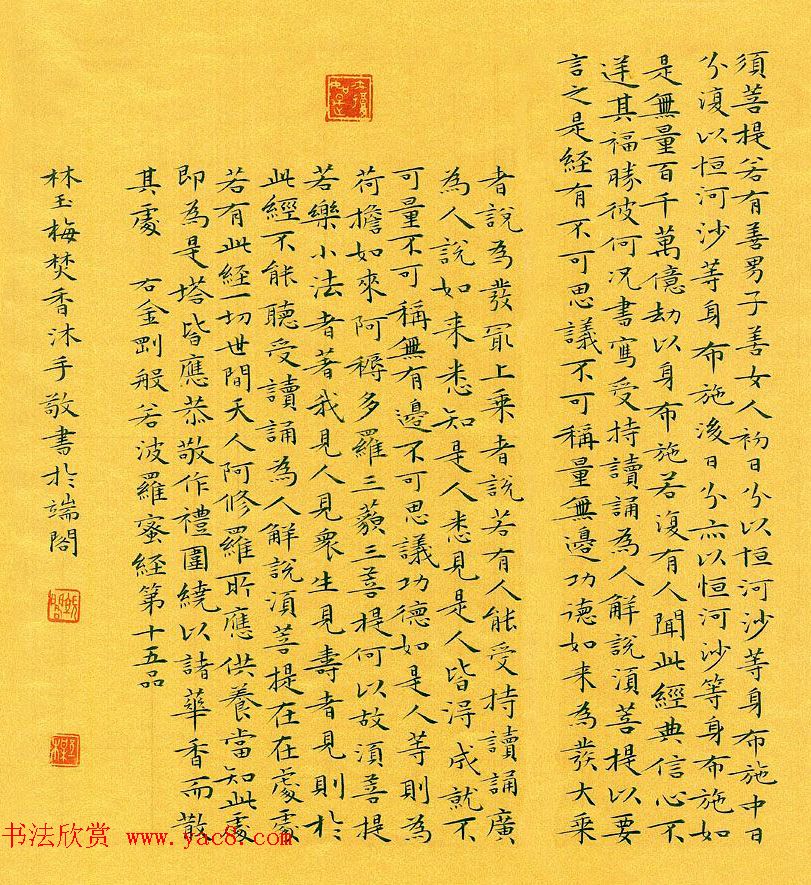 須菩提若有善男子善女人初日分以恒河沙等身布施中日
分復以恒河沙等身布施後日分亦以恒河沙等身布施如
是無量百千萬億劫以身布施若復有人聞此經典信心不
逆其福勝彼何況書寫受持讀誦為人解說須菩提以要
言之是經有不可思議不可稱量無邊功德如来為發大乘
者說為發冣上乗者說若有人能受持讀誦廣
為人說如来悉知是人悉見是人皆得成就不
可量不可稱無有邊不可思議功德如是人等則為
荷擔如來阿耨多羅三藐三菩提何以故須菩提
若樂小法者著我見人見衆生見壽者見則於
此經不能聽受讀誦為人解說須菩提在在處處
若有此經一切世間天人阿修羅所應供養當知此處
即為是塔皆應恭敬作禮圍繞以諸華香而散
其處 右金剛般若波羅蜜經第十五品
林玉梅焚香沐手敬書於端閣
书法欣赏 www.yac8.com